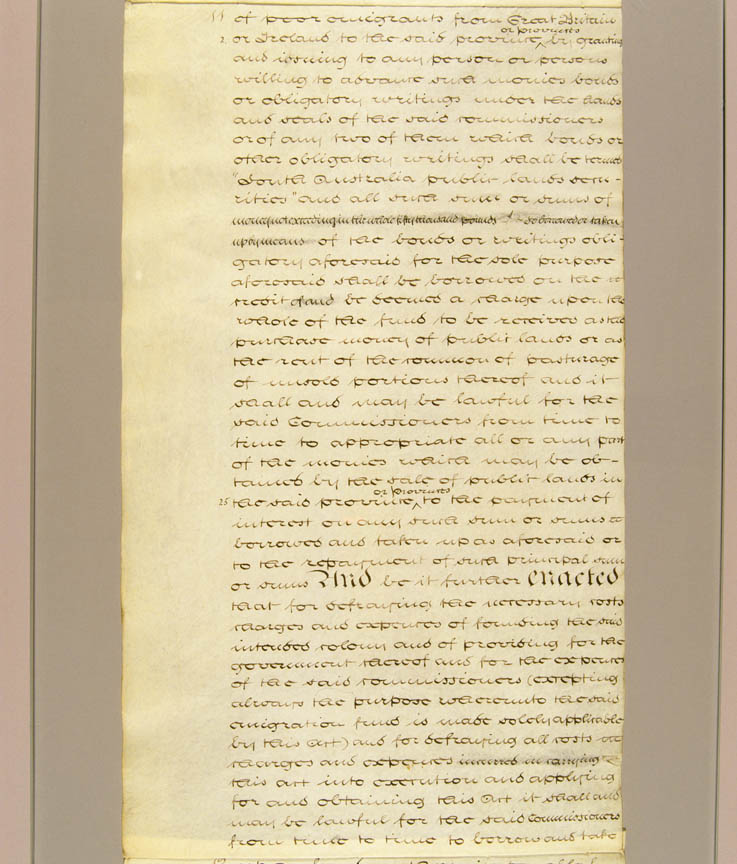 11 of poor emigrants from Great Britain
or provinces
2. or Ireland to the said province, by granting
and issuing to any person or persons
willing to advance such monies bonds
or obligatory writings under the hands
and seals of the said commissioners
or of any two of them which bonds or
other obligatory writings shall be termed
"South Australia public lands secu-
rities" and all such sum or sums of
money not exceeding in the whole fifty thousand pounds so borrowed or taken
up by means of the bonds or writings obli-
gatory aforesaid for the sole purpose
aforesaid shall be borrowed on the
credit of and be deemed a charge upon the
whole of the fund to be received as the
purchase money of public lands or as
the rent of the common of pasturage
of unsold portions thereof and it
shall and may be lawful for the
said Commissioners from time to
time to appropriate all or any part
of the monies which may be ob-
tained by the sale of public lands in
or provinces
25 the said province, to the payment of
interest on any such sum or sums
borrowed and taken up as aforesaid or
to the repayment of such principal sum
or sums And be it further enacted
that for defraying the necessary costs
charges and expences of founding the said
intended colony and of providing for the
government thereof and for the expences
of the said commissioners (excepting
always the purpose whereunto the said
emigration fund is made solely applicable
by this Act) and for defraying all costs
charges and expences incurred in carrying
this act into execution and applying
for and obtaining this Act it shall and
may be lawful for the said Commissioners
from time to time to borrow and take